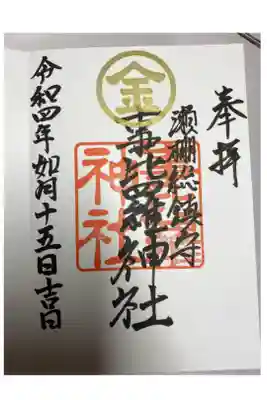 奉拝
瀬棚総鎮守
金
事比羅神社
神社
令和四年如月十五日吉日